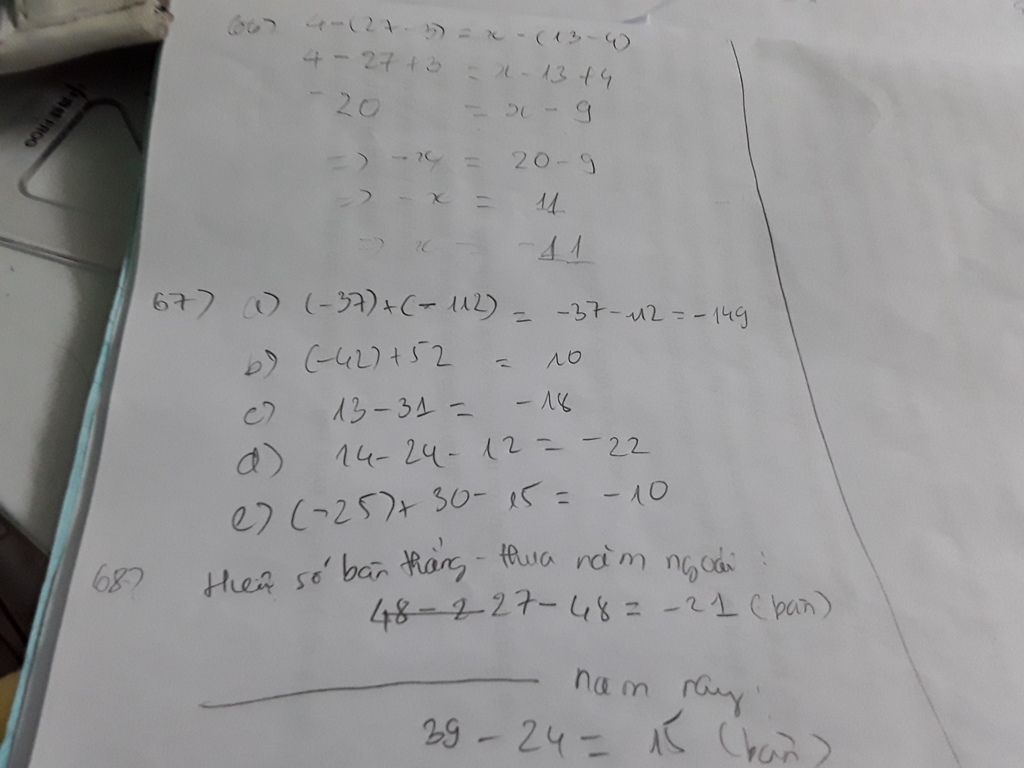 66) 4-(27-3) = x-(13-4)
4-27+3 = x-13+4
-20 = x-9
=> -x = 20-9
=> -x = 11
=> x = -11
67) a) (-37)+(-112) = -37-112 = -149
b) (-42)+52 = 10
c) 13-31 = -18
d) 14-24-12 = -22
e) (-25)+30-15 = -10
68) Hiệu số bàn thắng - thua năm ngoái:
48-2 27-48 = -21 (bàn)
năm nay:
39-24 = 15 (bàn)